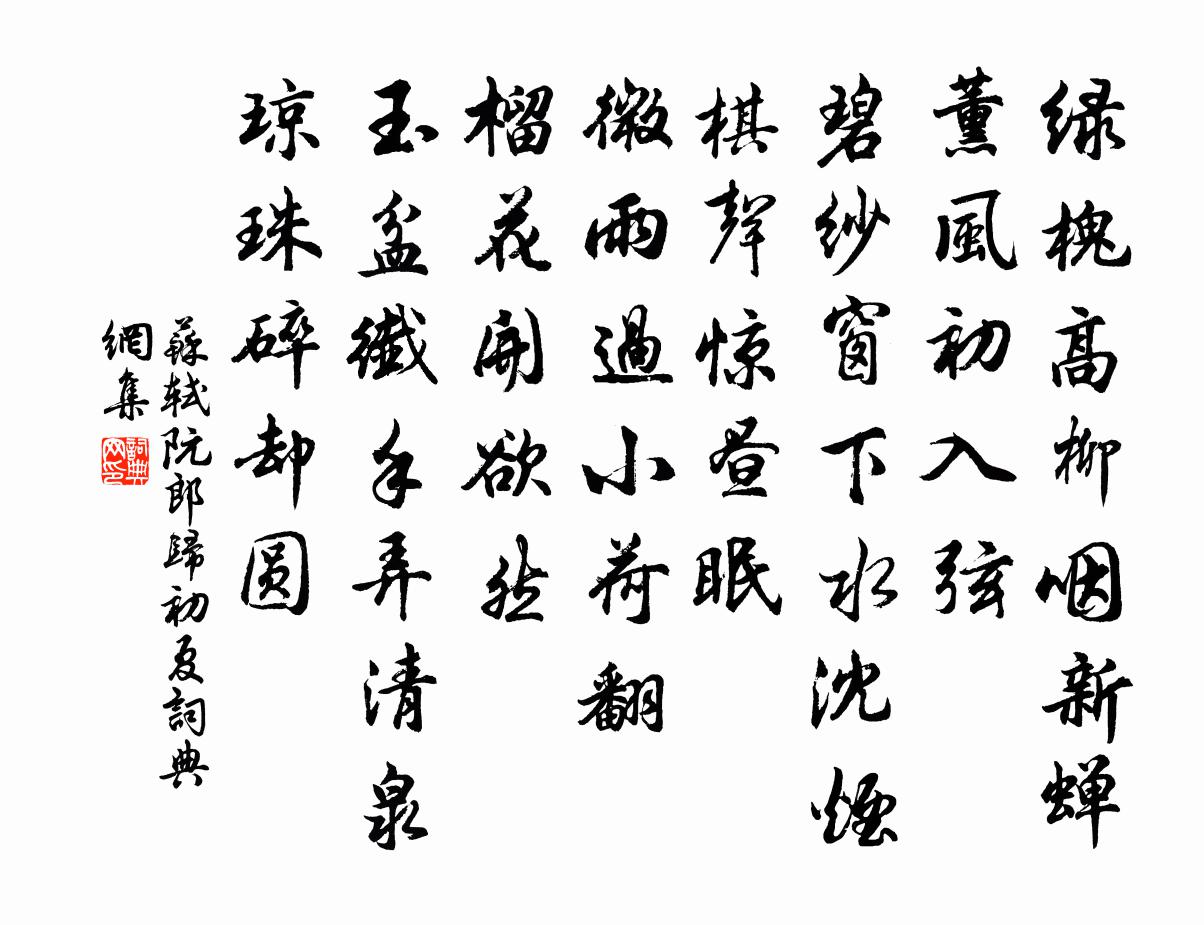 绿槐高柳咽新蝉
薰風初入弦
碧纱窗下水沈煙
棋聲惊昼眠
微雨過小荷翻
榴花開欲然
玉盆纖手弄清泉
琼珠碎却圆
蘇轼阮郎歸初夏詞典
網集
詞典
网印